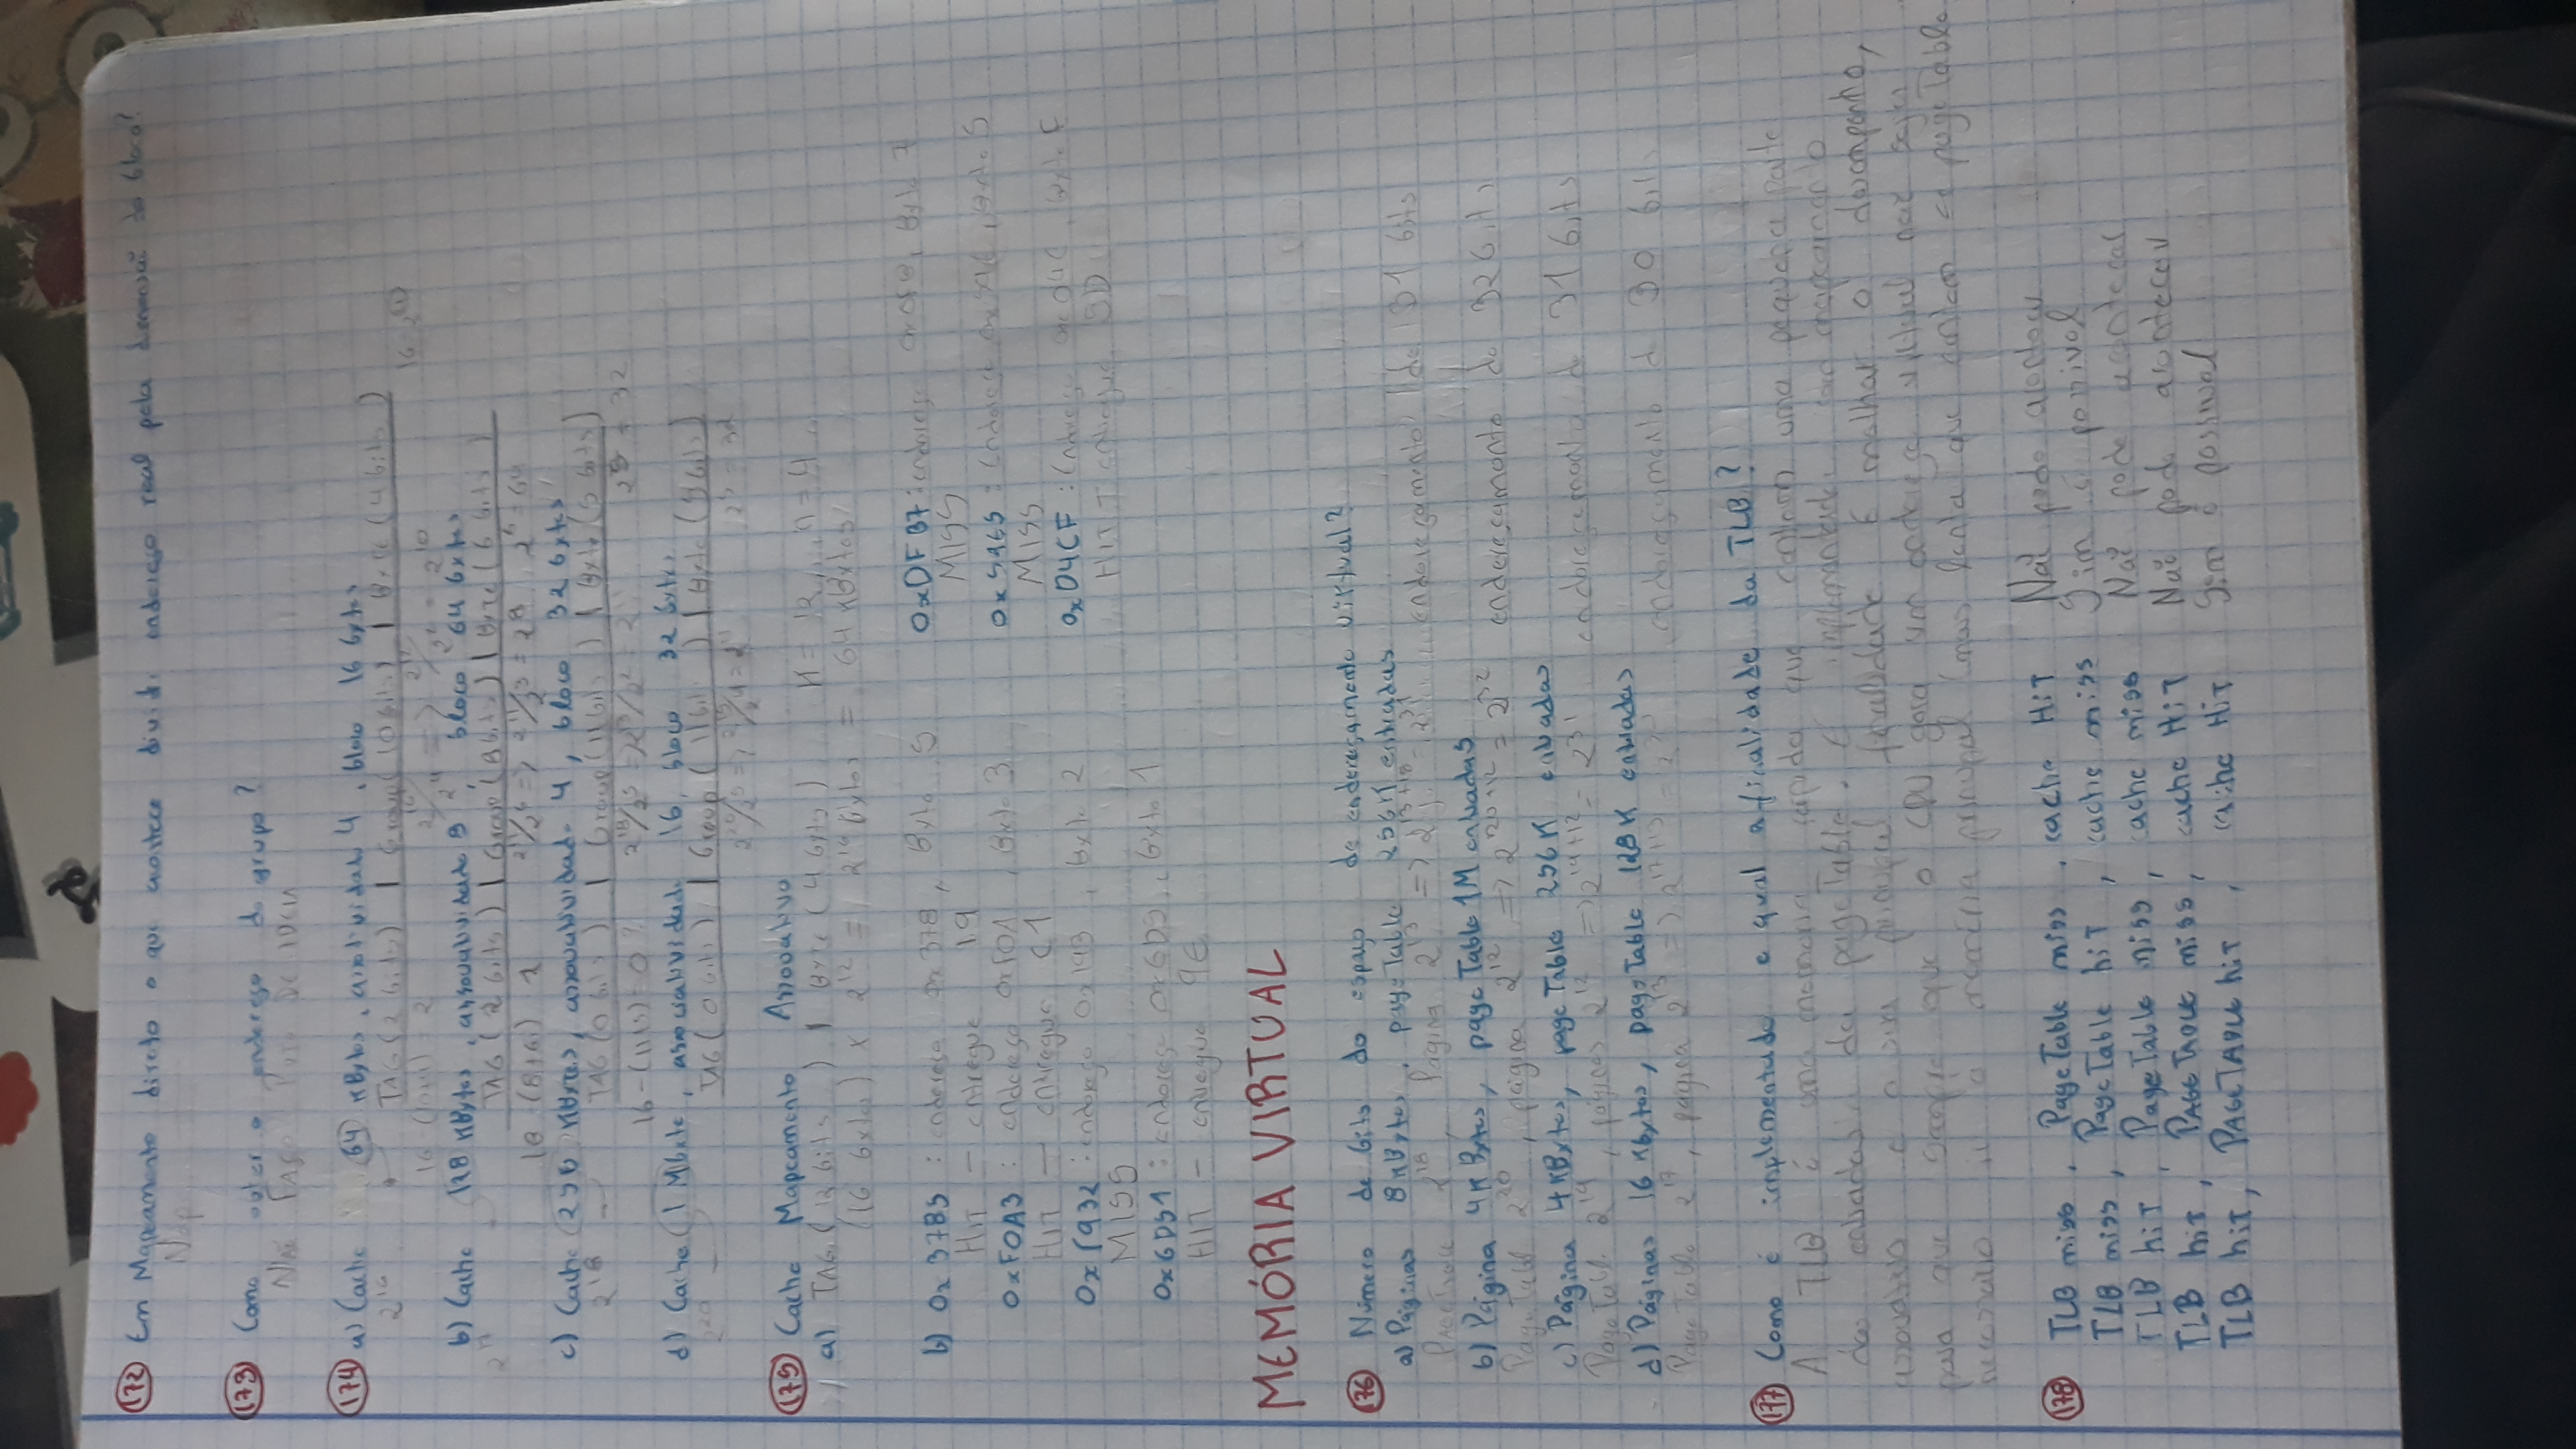 172 Em Mapeamento direto o que acontece dividir endereço real pela dimensão do bloco?
Nop
173 Como obter o endereço do grupo?
174 a) Cache 64 KBytes, associatividade 4, bloco 16 bytes
2^16 TAG (2 bits) | Group (10 bits) | Byte (4 bits)
16 - (10+4) = 2
b) Cache 128 KBytes, associatividade 8, bloco 64 bytes
2^17 TAG (2 bits) | Group (8 bits) | Byte (6 bits)
2^6 = 64
c) Cache 256 KBytes, associatividade 4, bloco 32 bytes
2^18 TAG (0 bits) | Group (11 bits) | Byte (5 bits)
16 - (11+5) = 0? 2^5 = 32
d) Cache 1 Mbyte, associatividade 16, bloco 32 bytes
2^20 TAG (0 bits) | Group (11 bits) | Byte (5 bits)
2^5 = 32
175 Cache Mapeamento Associativo
a) TAG (12 bits) | Byte (4 bits) K = 12, n = 4
(16 bytes) x 2^12 = 2^16 bytes = 64 KBytes
b) 0x37B5 : endereço 0x37B, Byte 5
HIT - entregue 19
0xF0A3 : endereço 0xF0A, Byte 3
HIT - entregue C1
0x1932 : endereço 0x193, Byte 2
MISS
0x6D51 : endereço 0x6D5, Byte 1
HIT - entregue 9E
0xDFB7 : endereço 0xDFB, Byte 7
MISS
0x5A65 : endereço 0x5A6, Byte 5
MISS
0xD4CF : endereço 0xD4C, Byte F
HIT - entregue 5D
MEMÓRIA VIRTUAL
176 Número de bits do espaço de endereçamento virtual?
a) Páginas 8 KBytes, pageTable 256K entradas
PageTable 2^18, Página 2^13 => 2^13+18 = 2^31 endereçamento de 31 bits
b) Página 4K Bytes, pageTable 1M entradas
PageTable 2^20, página 2^12 => 2^20+12 = 2^32 endereçamento de 32 bits
c) Página 4KBytes, pageTable 256K entradas
PageTable 2^19, páginas 2^12 => 2^19+12 = 2^31 endereçamento de 31 bits
d) Páginas 16 Kbytes, pageTable 128K entradas
PageTable 2^17, página 2^13 => 2^17+13 endereçamento de 30 bits
177 Como é implementado e qual a finalidade da TLB?
A TLB é uma memória rápida que contem uma pequena parte
das entradas da pageTable. É implementada mapeamento
associativo e a sua principal finalidade é melhar o desempenho,
para que sempre que o CPU gera um endereço virtual não seja
necessário ir à memória principal (mais lenta que contem a pageTable
178 TLB miss, PageTable miss, cache HiT Não pode acontecer
TLB miss, PageTable hiT, cache miss Sim é possivel
TLB hiT, PageTable miss, cache miss Não pode acontecer
TLB hiT, PAGETABLE miss, cache HiT Não pode acontecer
TLB hiT, PAGETABLE hiT, cache HiT Sim é possivel